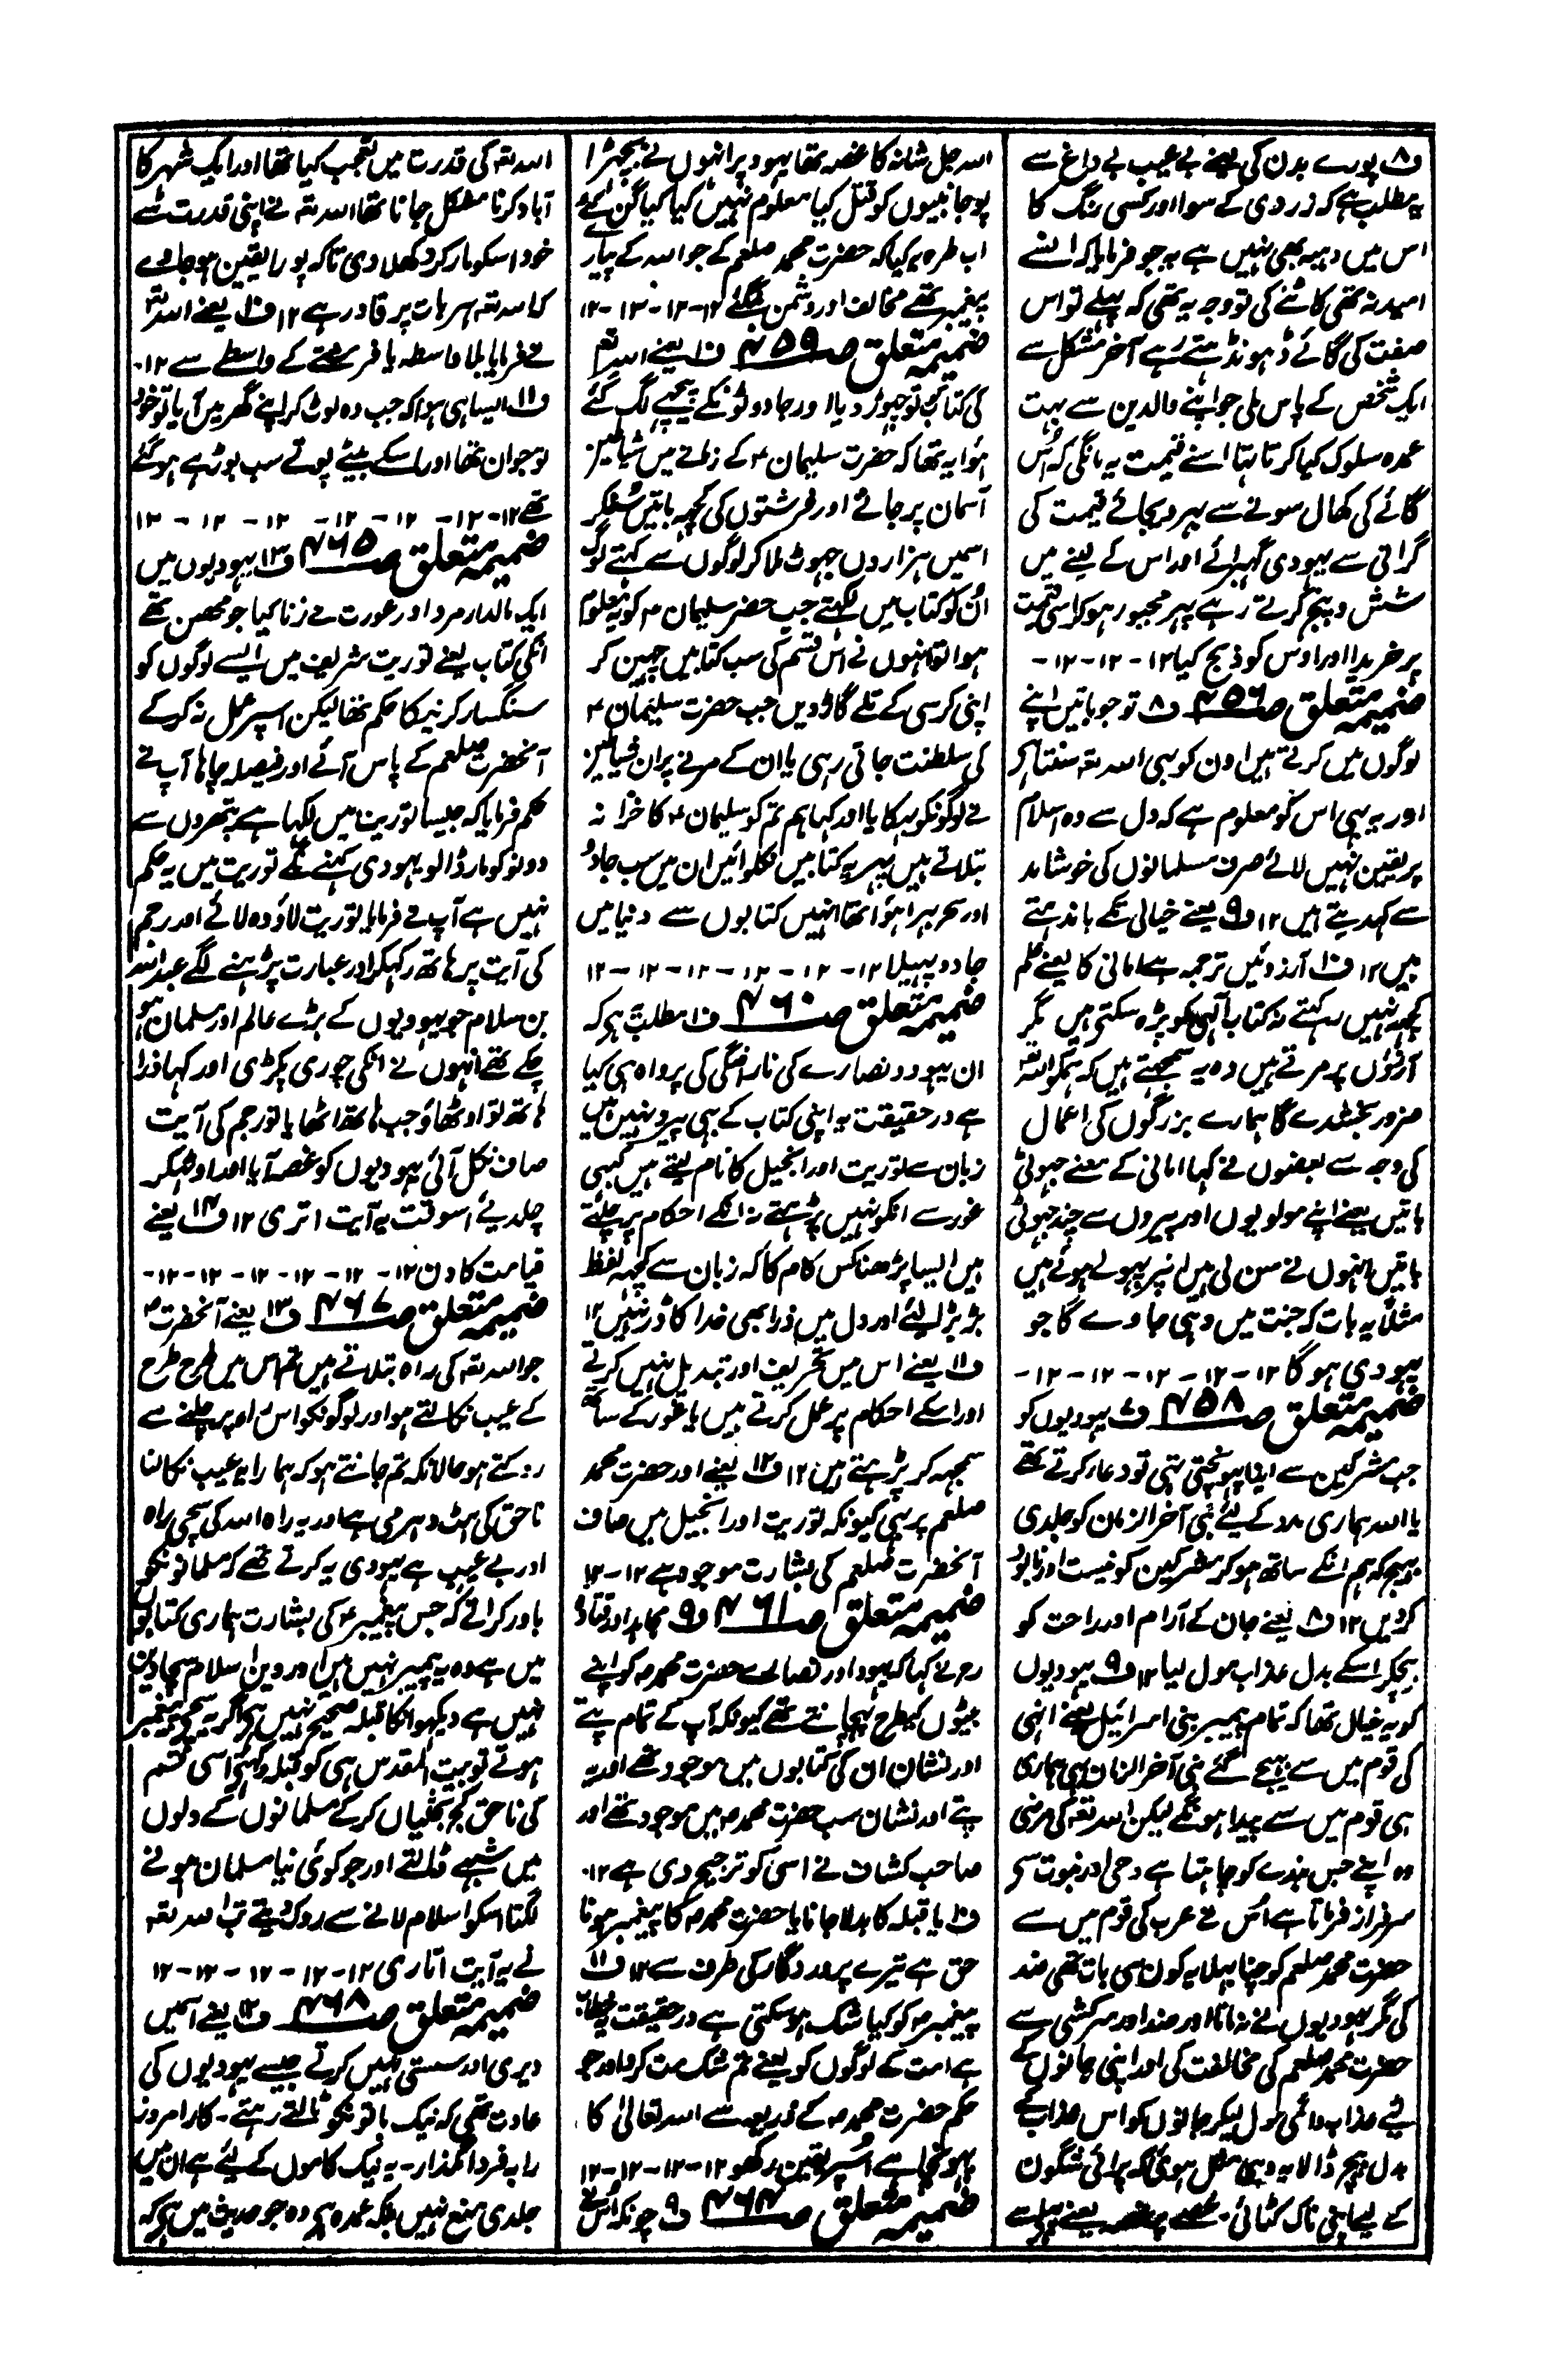 ف۸ پورے بدن کی یعنے بے عیب بے داغ سے
یہ مطلب ہے کہ زردی کے سوا اور کسی رنگ کا
اس میں دہبہ بھی نہیں ہے یہ جو فرمایا کہ انسے
امید نہ تھی کاٹنے کی تو وجہ یہ تھی کہ پہلے تو اس
صفت کی گائے ڈہونڈہتے رہے آخر مشکل سے
ایک شخص کے پاس ملی جو اپنے والدین سے بہت
عمدہ سلوک کیا کرتا تہا اسنے قیمت یہ مانگی کہ اُس
گائے کی کھال سونے سے بہر دیجائے قیمت کی
گرانی سے یہودی گہبرائے اور اس کے لینے میں
شش و پنج کرتے رہے پہر مجبور ہو کر اسی قیمت
پر خریدا اور اوس کو ذبح کیا ۱۲ - ۱۲ - ۱۲ -
ضمیمہ متعلق صـ ۴۵۶ ف۸ تو جو باتیں اپنے
لوگوں میں کرتے ہیں اون کو بہی اللہ تعہ سنتا ہے
اور یہ بہی اس کو معلوم ہے کہ دل سے وہ اسلام
پر یقین نہیں لائے صرف مسلمانوں کی خوشامد
سے کہدیتے ہیں ۱۲ ف۹ یعنے خیالی تکے باندہتے
ہیں ۱۲ ف۱۰ آرزوئیں ترجمہ ہے امانی کا یعنے علم
کچہہ نہیں رکہتے نہ کتاب الٰہی کو پڑہ سکتی ہیں مگر
آرزؤں پر مرتے ہیں وہ یہ سمجہتے ہیں کہ ہمکو اللہ تعہ
ضرور بخشدے گا ہمارے بزرگوں کی اعمال
کی وجہ سے بعضوں نے کہا امانی کے معنے جہوٹی
باتیں یعنے اپنے مولویوں اور پیروں سے چند جہوٹی
باتیں انہوں نے سن لی ہیں انپر پہولے ہوئے ہیں
مثلاً یہ بات کہ جنت میں وہی جاوے گا جو
یہودی ہو گا ۱۲ - ۱۲ - ۱۲ - ۱۲ - ۱۲ -
ضمیمہ متعلق صـ ۴۵۸ ف یہودیوں کو
جب مشرکین سے ایذا پہونچتی تہی تو دعاء کرتے تھے
یا اللہ ہماری مدد کے لیئے نبی آخر الزمان کو جلدی
بہیجکہ ہم انکے ساتھ ہو کر مشرکین کو نیست و نابود
کردیں ۱۲ ف۸ یعنے جان کے آرام اور راحت کو
بیچکر اسکے بدل عذاب مول لیا ۱۲ ف۹ یہودیوں
کو یہ خیال تھا کہ تمام پیمبر بنی اسرائیل یعنے انہی
کی قوم میں سے بہیجے گئے نبی آخر الزمان بہی ہماری
ہی قوم میں سے پیدا ہونگے لیکن اللہ تعہ کی مرضی
وہ اپنے جس بندے کو چاہتا ہے وحی اور نبوت سے
سرفراز فرماتا ہے اُس نے عرب کی قوم میں سے
حضرت محمد صلعم کو چنا بہلا یہ کون سی بات تھی ضد
کی مگر یہودیوں نے نہ مانا اور ضد اور سرکشی سے
حضرت محمد صلعم کی مخالفت کی اور اپنی جانوں کے
لیے عذاب دائمی مول لیکر جانوں کو اس عذاب کے
بدل بیچ ڈالا یہ وہی مثل ہوئی کہ پرائی شگون
کے لیے اپنی ناک کٹائی - غصے پر غصہ یعنے پہلے سے
اللہ جل شانہ کا غصہ تھا یہود پر انہوں نے بچھڑا
پوجا نبیوں کو قتل کیا معلوم نہیں کیا کیا گن کئے
اب طرہ یہ کیا کہ حضرت محمد صلعم کے جو اللہ کے پیارے
پیغمبر تھے مخالف اور دشمن بنگئے ۱۲ - ۱۲ - ۱۲ - ۱۲
ضمیمہ متعلق صـ ۴۵۹ ف۱۰ یعنے اللہ تعہ
کی کتاب کو تو چہوڑ دیا اور جادو ٹونکے پیچہے لگ گئے
ہوا یہ تھا کہ حضرت سلیمان ۴ کے زمانے میں شیاطین
آسمان پر جاتے اور فرشتوں کی کچہہ باتیں سنکر
اسمیں ہزاروں جہوٹ ملا کر لوگوں سے کہتے لوگ
اُن کو کتاب میں لکہتے جب حضرت سلیمان ۴ کو یہ معلوم
ہوا تو انہوں نے اُس قسم کی سب کتابیں چہین کر
اپنی کرسی کے تلے گاڑ دیں جب حضرت سلیمان ۴
کی سلطنت جاتی رہی یا ان کے مرنے پر ان شیاطین
نے لوگونکو بہکایا اور کہا ہم تم کو سلیمان ۴ کا خزانہ
بتلاتے ہیں پہر یہ کتابیں نکلوائیں ان میں سب جادو
اور سحر بہرا ہوا تھا انہیں کتابوں سے دنیا میں
جادو پہیلا ۱۲ - ۱۲ - ۱۲ - ۱۲ - ۱۲ - ۱۲
ضمیمہ متعلق صـ ۴۶۰ ف۱۰ مطلب یہ ہے کہ
ان یہود و نصارے کی ناراضگی کی پرواہ ہی کیا
ہے درحقیقت یہ اپنی کتاب کے بہی پیرو نہیں ہیں
زبان سے توریت اور انجیل کا نام لیتے ہیں کبہی
غور سے انکو نہیں پڑہتے نہ انکے احکام پر چلتے
ہیں ایسا پڑھنا کس کام کا کہ زبان سے کچہہ لفظ
بڑبڑا لیئے اور دل میں ذرا بھی خدا کا ڈر نہیں ۱۲
ف۱۱ یعنے اس میں تحریف اور تبدیل نہیں کرتے
اور اسکے احکام پر عمل کرتے ہیں یا غور کے ساتھ
سمجہہ کر پڑہتے ہیں ۱۲ ف۱۲ یعنے اور حضرت محمد
صلعم پر بہی کیونکہ توریت اور انجیل میں صاف
آنحضرت صلعم کی بشارت موجود ہے ۱۲ - ۱۲
ضمیمہ متعلق صـ ۴۶۱ ف۹ مجاہد اور قتادہ
رحہ نے کہا کہ یہود اور نصارے حضرت محمد صہ کو اپنے
بیٹوں کیطرح پہچانتے تھے کیونکہ آپ کے تمام پتے
اور نشان ان کی کتابوں میں موجود تھے اور یہ
پتے اور نشان سب حضرت محمد صہ میں موجود تھے اور
صاحب کشاف نے اسی کو ترجیح دی ہے ۱۲.
ف۱۰ یا قبلہ کا بدلا جانا یا حضرت محمد صہ کا پیغمبر ہونا
حق ہے تیرے پروردگار کی طرف سے ۱۲ ف۱۱
پیغمبر صہ کو کیا شک ہو سکتی ہے درحقیقت یہ خطاب
ہے امت کے لوگوں کو یعنے تم شک مت کرو اور جو
حکم حضرت محمد صہ کے ذریعہ سے اللہ تعالیٰ کا
پہونچا ہے اُسپر یقین رکھو ۱۲ - ۱۲ - ۱۲ - ۱۲
ضمیمہ متعلق صـ ۴۶۴ ف۹ چونکہ اُس نے
اللہ تعہ کی قدرت میں تعجب کیا تھا اور ایک شہر کا
آباد کرنا مشکل جانا تھا اللہ تعہ نے اپنی قدرت سے
خود اسکو مار کر دکھلا دی تاکہ پورا یقین ہو جاوے
کہ اللہ تعہ ہر بات پر قادر ہے ۱۲ ف۱۰ یعنے اللہ تعہ
نے فرمایا بلا واسطہ یا فرشتے کے واسطے سے ۱۲.
ف۱۱ ایسا ہی ہوا کہ جب وہ لوٹ کر اپنے گھر میں آیا تو خود
نوجوان تھا اور اسکے بیٹے پوتے سب بوڑہے ہو گئے
تھے ۱۲ - ۱۲ - ۱۲ - ۱۲ - ۱۲ - ۱۲ - ۱۲
ضمیمہ متعلق صـ ۴۶۵ ف۱۳ یہودیوں میں
ایک مالدار مرد اور عورت نے زنا کیا جو محصن تھے
انکی کتاب یعنے توریت شریف میں ایسے لوگوں کو
سنگسار کرنیکا حکم تھا لیکن اسپر عمل نہ کر کے
آنحضرت صلعم کے پاس آئے اور فیصلہ چاہا آپ نے
حکم فرمایا کہ جیسا توریت میں لکہا ہے پتھروں سے
دونو کو مار ڈالو یہودی کہنے لگے توریت میں یہ حکم
نہیں ہے آپ نے فرمایا توریت لاؤ وہ لائے اور رجم
کی آیت پر ہاتھ رکہکر اور عبارت پڑہنے لگے عبد اللہ
بن سلام جو یہودیوں کے بڑے عالم اور مسلمان ہو
چکے تھے انہوں نے انکی چوری پکڑی اور کہا ذرا
ہاتھ تو اوٹھاؤ جب ہاتھ اٹھایا تو رجم کی آیت
صاف نکل آئی یہودیوں کو غصہ آیا اور اوٹہکر
چلدیئے اسوقت یہ آیت اتری ۱۲ ف۱۴ یعنے
قیامت کا دن ۱۲ - ۱۲ - ۱۲ - ۱۲ - ۱۲ - ۱۲ -
ضمیمہ متعلق صـ ۴۶۷ ف۱۳ یعنے آنحضرت ۴
جو اللہ تعہ کی راہ بتلاتے ہیں تم اس میں طرح طرح
کے عیب نکالتے ہو اور لوگونکو اس راہ پر چلنے سے
روکتے ہو حالانکہ تم جانتے ہو کہ ہمارا یہ عیب نکالنا
ناحق کی ہٹ دہرمی ہے اور یہ راہ اللہ کی سچی راہ
اور بے عیب ہے یہودی یہ کرتے تھے کہ مسلمانونکو
باور کراتے کہ جس پیغمبر ۴ کی بشارت ہماری کتابوں
میں ہے وہ یہ پیمبر نہیں ہیں اور دین اسلام سچا دین
نہیں ہے دیکہو انکا قبلہ صحیح نہیں ہے اگر یہ سچے پیغمبر
ہوتے تو بیت المقدس ہی کو قبلہ رکہتے اسی قسم
کی ناحق کج بحثیاں کر کے مسلمانوں کے دلوں
میں شبہے ڈالتے اور جو کوئی نیا مسلمان ہونے
لگتا اسکو اسلام لانے سے روک دیتے تب اللہ تعہ
نے یہ آیت اتاری ۱۲ - ۱۲ - ۱۲ - ۱۲ - ۱۲
ضمیمہ متعلق صـ ۴۶۸ ف۱۲ یعنے اسمیں
دیری اور سستی نہیں کرتے جیسے یہودیوں کی
عادت تھی کہ نیک باتونکو ٹالتے رہتے - کار امروز
را بہ فردا مگذار - یہ نیک کاموں کے لیئے ہے ان میں
جلدی منع نہیں بلکہ عمدہ ہے وہ جو حدیث میں ہے کہ